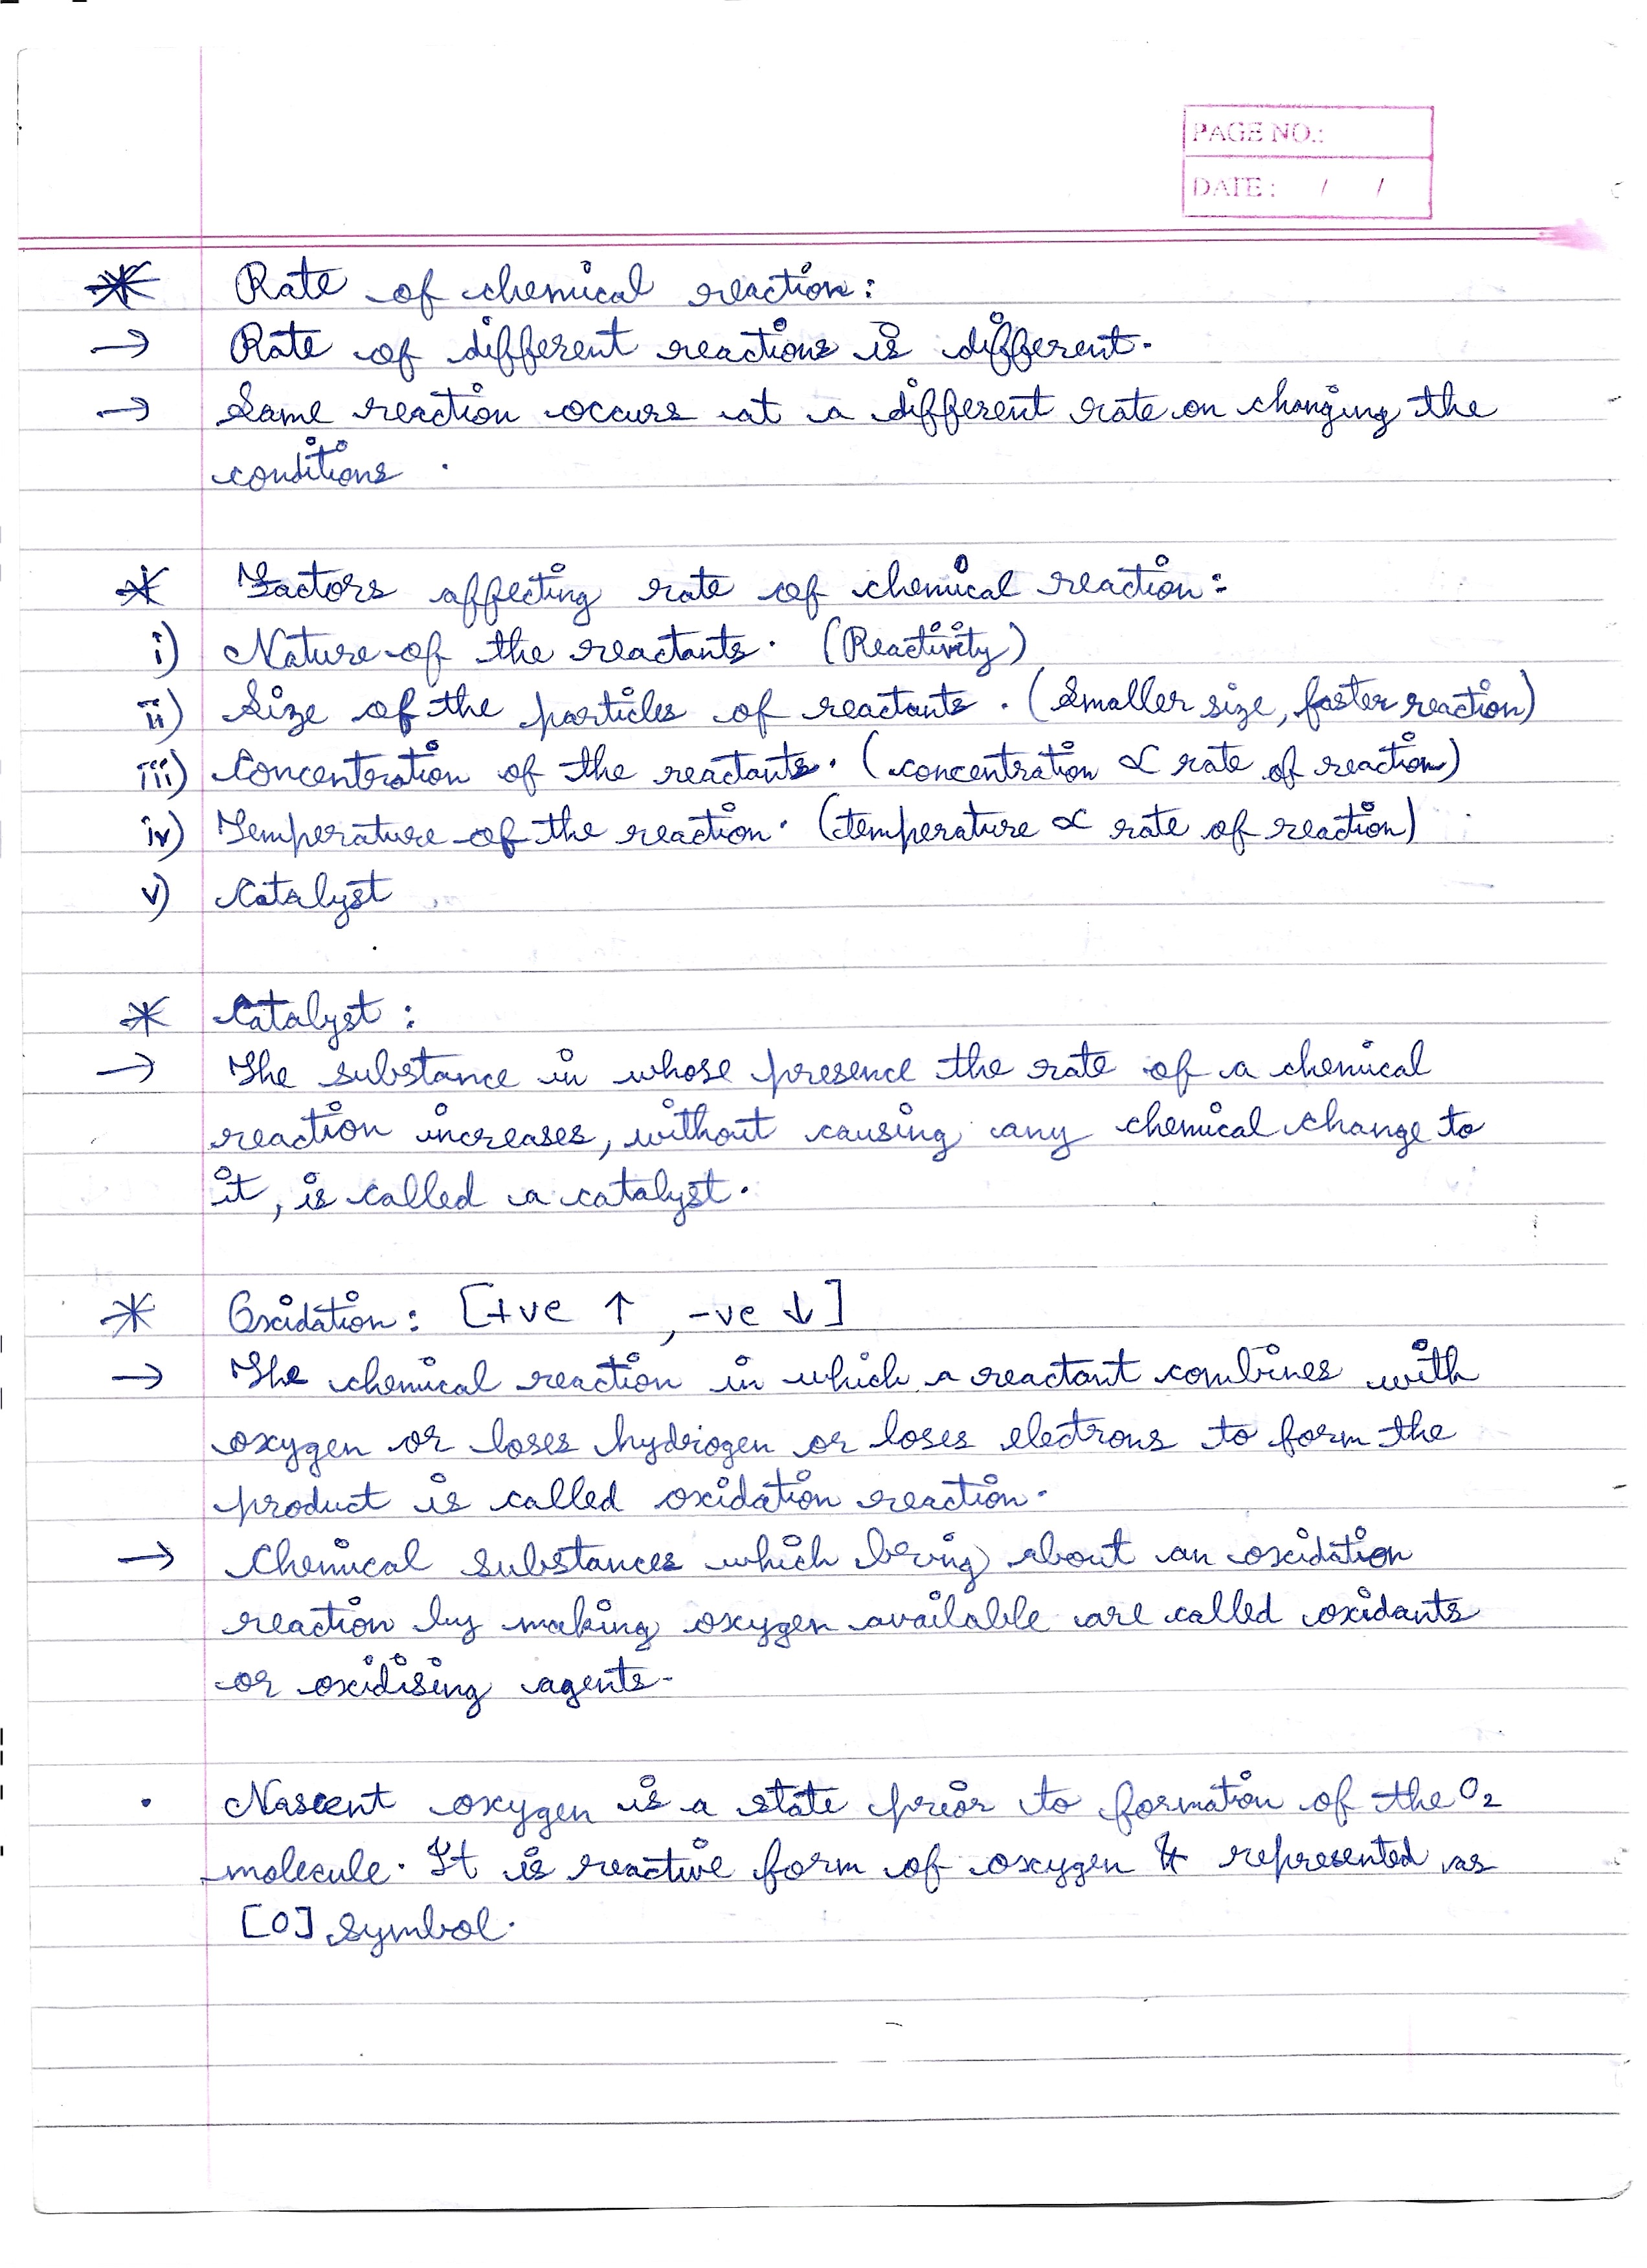 PAGE NO.:
DATE: / /
* Rate of chemical reaction:
→ Rate of different reactions is different.
→ Same reaction occurs at a different rate on changing the
conditions.
* Factors affecting rate of chemical reaction:
i) Nature of the reactants. (Reactivity)
ii) Size of the particles of reactants. (Smaller size, faster reaction)
iii) Concentration of the reactants. (concentration ∝ rate of reaction)
iv) Temperature of the reaction. (temperature ∝ rate of reaction)
v) Catalyst
* Catalyst:
→ The substance in whose presence the rate of a chemical
reaction increases, without causing any chemical change to
it, is called a catalyst.
* Oxidation: [+ve ↑, -ve ↓]
→ The chemical reaction in which a reactant combines with
oxygen or loses hydrogen or loses electrons to form the
product is called oxidation reaction.
→ Chemical substances which bring about an oxidation
reaction by making oxygen available are called oxidants
or oxidising agents.
• Nascent oxygen is a state prior to formation of the O₂
molecule. It is reactive form of oxygen It represented as
[O] symbol.